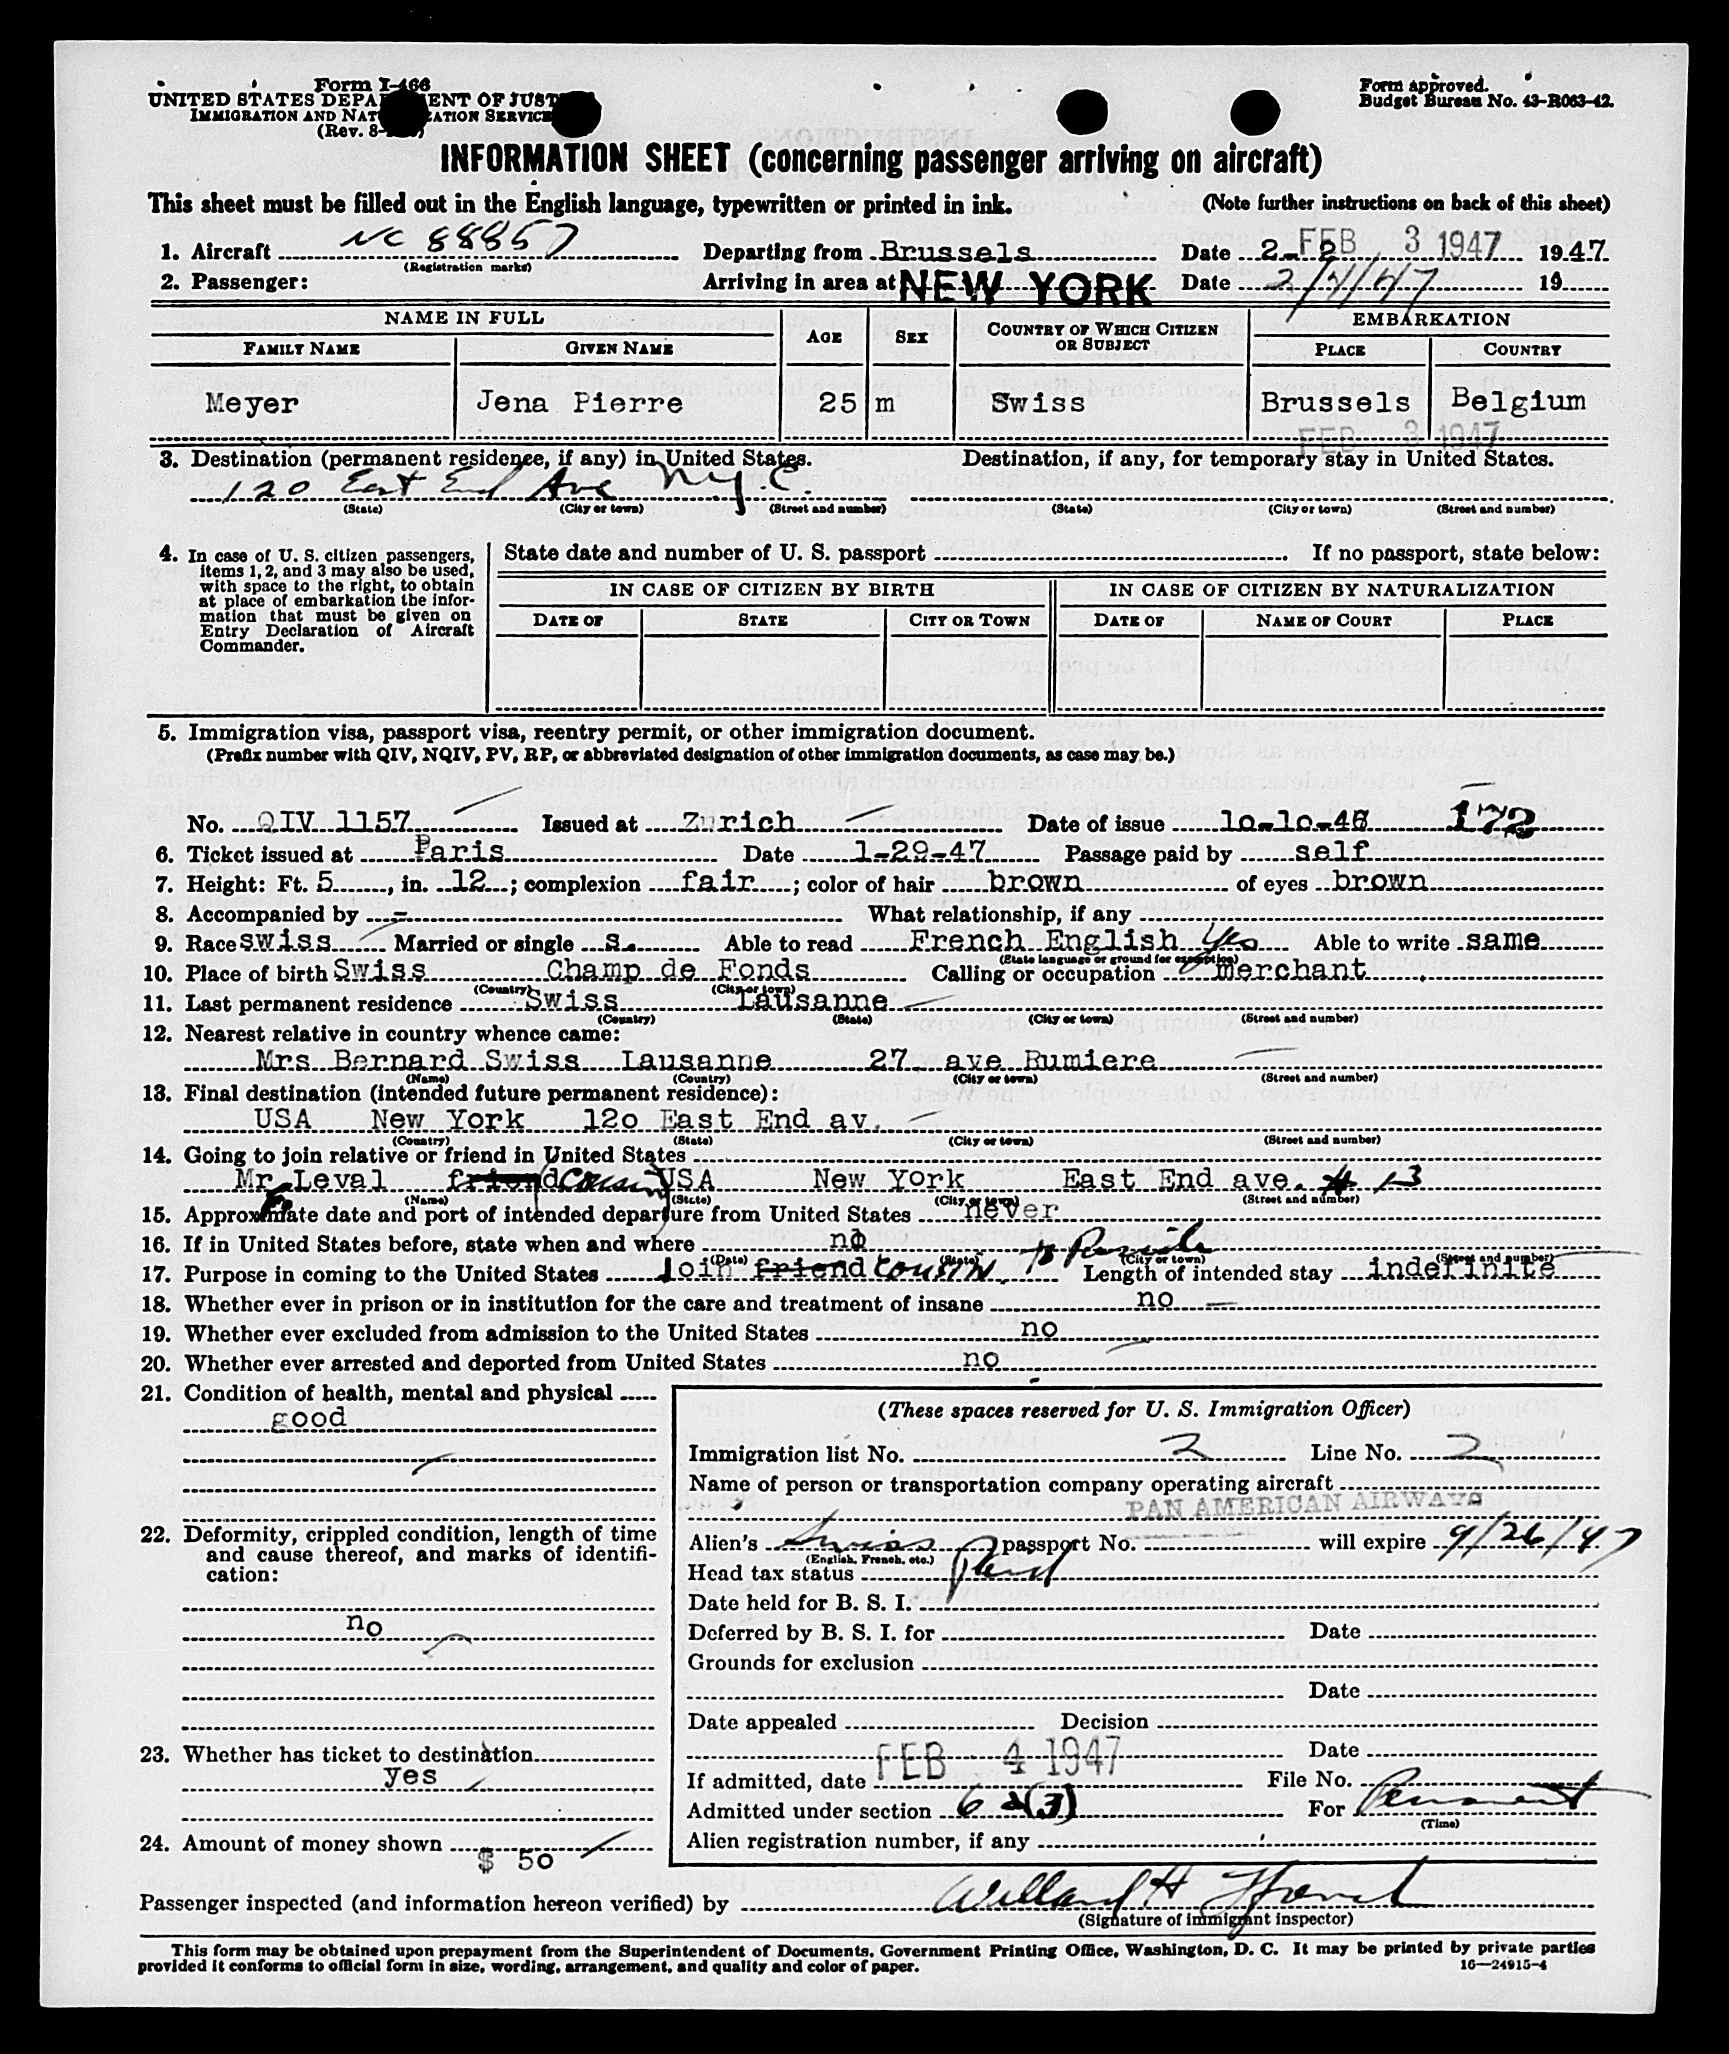 Form I-466
UNITED STATES DEPARTMENT OF JUSTICE
IMMIGRATION AND NATURALIZATION SERVICE
(Rev. 8-
Form approved.
Budget Bureau No. 43-R063-42.
INFORMATION SHEET (concerning passenger arriving on aircraft)
This sheet must be filled out in the English language, typewritten or printed in ink. (Note further instructions on back of this sheet)
1. Aircraft NC 88857 Departing from Brussels Date 2-2 FEB 3 1947 1947
(Registration marks)
2. Passenger: Arriving in area at NEW YORK Date 2/4/47 19
NAME IN FULL AGE SEX COUNTRY OF WHICH CITIZEN OR SUBJECT EMBARKATION
FAMILY NAME GIVEN NAME PLACE COUNTRY
Meyer Jena Pierre 25 m Swiss Brussels Belgium
FEB 3 1947
3. Destination (permanent residence, if any) in United States. Destination, if any, for temporary stay in United States.
120 East End Ave N.Y.C.
(State) (City or town) (Street and number) (State) (City or town) (Street and number)
4. In case of U. S. citizen passengers, items 1, 2, and 3 may also be used, with space to the right, to obtain at place of embarkation the information that must be given on Entry Declaration of Aircraft Commander.
State date and number of U. S. passport If no passport, state below:
IN CASE OF CITIZEN BY BIRTH IN CASE OF CITIZEN BY NATURALIZATION
DATE OF STATE CITY OR TOWN DATE OF NAME OF COURT PLACE
5. Immigration visa, passport visa, reentry permit, or other immigration document.
(Prefix number with QIV, NQIV, PV, RP, or abbreviated designation of other immigration documents, as case may be.)
No. QIV 1157 Issued at Zurich Date of issue 10-10-46 172
6. Ticket issued at Paris Date 1-29-47 Passage paid by self
7. Height: Ft. 5, in. 12; complexion fair; color of hair brown of eyes brown
8. Accompanied by - What relationship, if any
9. Race swiss Married or single s. Able to read French English yes Able to write same
(State language or ground for exemption)
10. Place of birth Swiss Champ de Fonds Calling or occupation merchant
(Country) (City or town)
11. Last permanent residence Swiss Lausanne
(Country) (State) (City or town) (Street and number)
12. Nearest relative in country whence came:
Mrs Bernard Swiss Lausanne 27 ave Rumiere
(Name) (Country) (City or town) (Street and number)
13. Final destination (intended future permanent residence):
USA New York 12o East End av.
(Country) (State) (City or town) (Street and number)
14. Going to join relative or friend in United States
Mr Leval friend cousin USA New York East End ave. # 13
(Name) (State) (City or town) (Street and number)
15. Approximate date and port of intended departure from United States never
16. If in United States before, state when and where no
(Date) (State) (City or town) (Street and number)
17. Purpose in coming to the United States Join friend cousin to Reside Length of intended stay indefinite
18. Whether ever in prison or in institution for the care and treatment of insane no
19. Whether ever excluded from admission to the United States no
20. Whether ever arrested and deported from United States no
21. Condition of health, mental and physical
good
22. Deformity, crippled condition, length of time and cause thereof, and marks of identification:
no
23. Whether has ticket to destination
yes
24. Amount of money shown
$ 50
(These spaces reserved for U. S. Immigration Officer)
Immigration list No. 2 Line No. 2
Name of person or transportation company operating aircraft
PAN AMERICAN AIRWAYS
Alien's Swiss passport No. will expire 9/26/47
(English, French, etc.)
Head tax status Paid
Date held for B. S. I.
Deferred by B. S. I. for Date
Grounds for exclusion
Date
Date appealed Decision
Date
If admitted, date FEB 4 1947 File No.
Admitted under section 6 a(3) For Permanent
(Time)
Alien registration number, if any
Passenger inspected (and information hereon verified) by Willard H
(Signature of immigrant inspector)
This form may be obtained upon prepayment from the Superintendent of Documents, Government Printing Office, Washington, D. C. It may be printed by private parties
provided it conforms to official form in size, wording, arrangement, and quality and color of paper.
16—24915-4